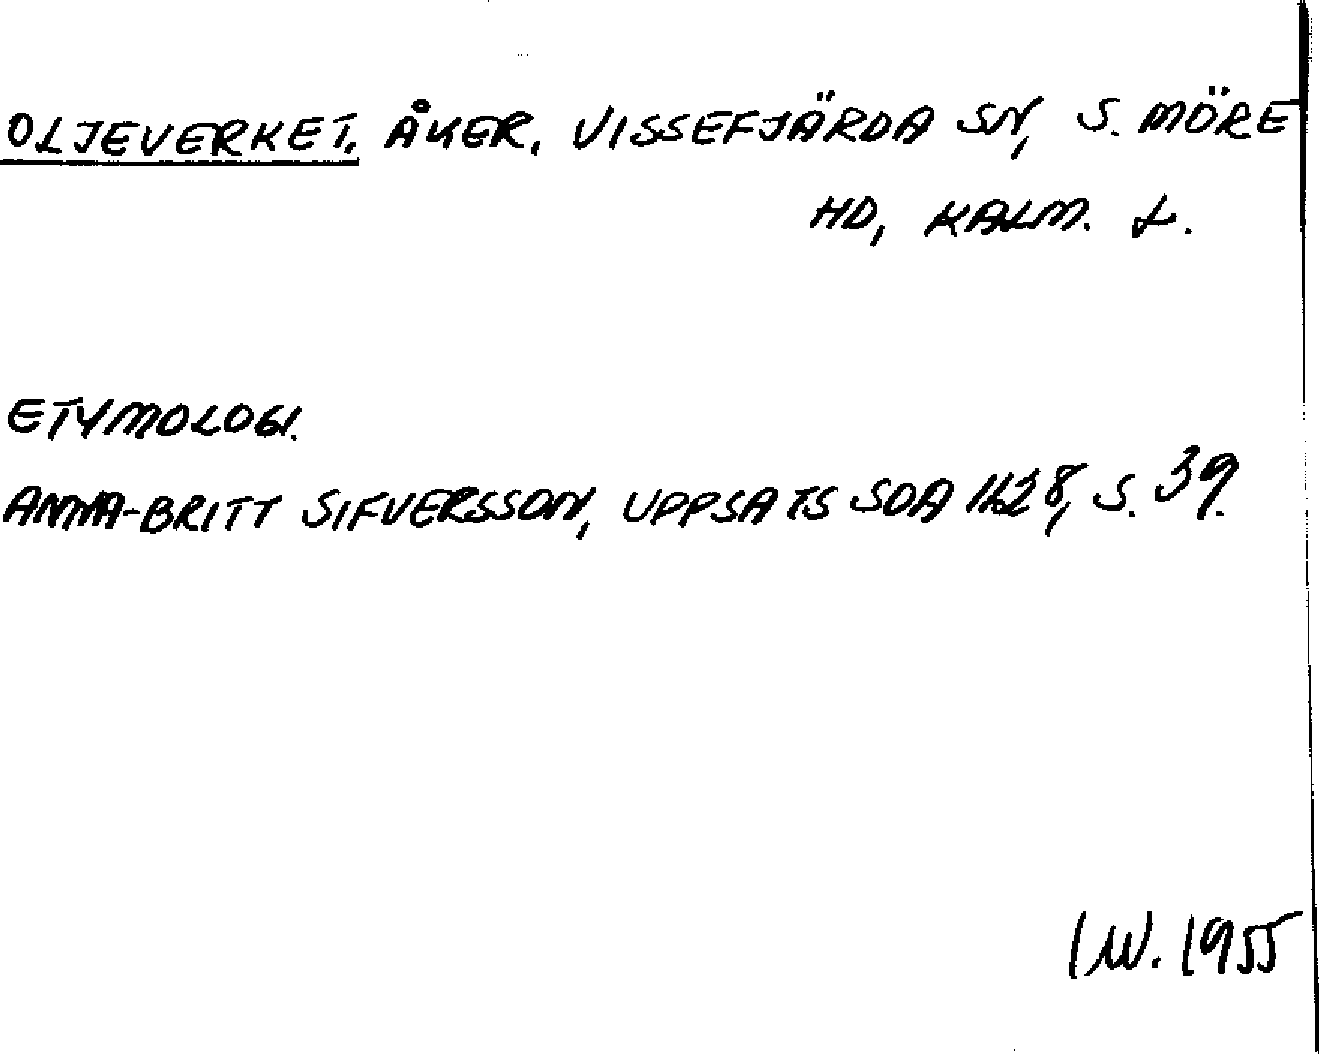 OLJEVERKET. ÅKER. VISSEFJÄRDA SN, S. MÖRE
HD, KALM. L.
ETYMOLOGI.
ANNA-BRITT SIFVERSSON, UPPSATS SOA 1628, S. 39.
IW. 1955